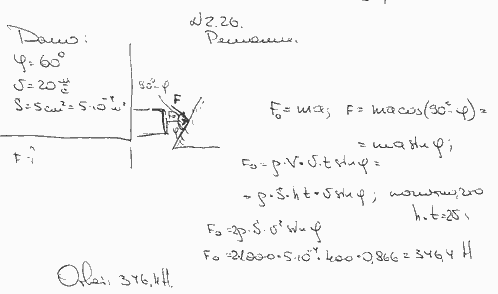 N2.26.
Дано: Решение.
φ = 60°
υ = 20 м/с
S = 5 см² = 5·10⁻⁴ м²
F - ?
90° - φ
F
F₀ = ma; F = ma cos(90° - φ) =
= ma sin φ;
F₀ = ρ · V · υ · t sin φ =
= ρ · S · h t · υ sin φ;
h · t = 2υ;
F₀ = 2ρ · S · υ² sin φ
F₀ = 2·1000 · 5·10⁻⁴ · 400 · 0,866 = 346,4 Н
Ответ: 346,4 Н.